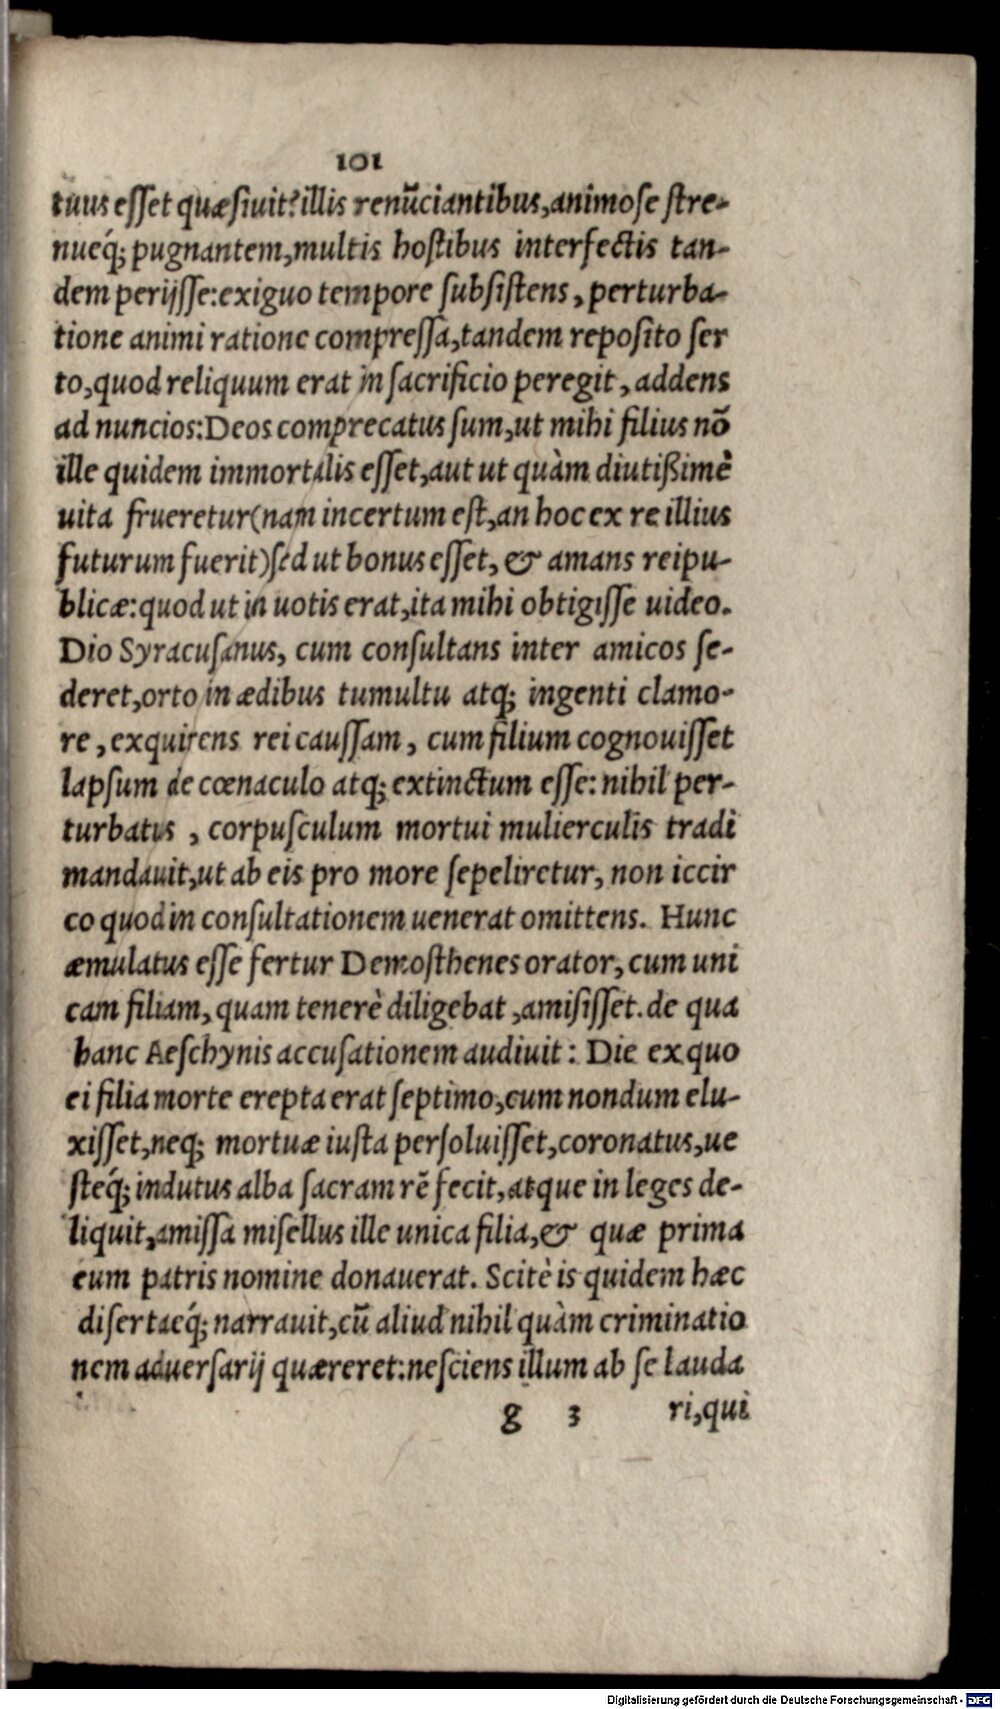 101
tuus esset quæsiuit? illis renũciantibus, animose stre-
nueq́; pugnantem, multis hostibus interfectis tan-
dem perijsse: exiguo tempore subsistens, perturba-
tione animi ratione compressa, tandem reposito ser
to, quod reliquum erat in sacrificio peregit, addens
ad nuncios: Deos comprecatus sum, ut mihi filius nõ
ille quidem immortalis esset, aut ut quàm diutißimè
uita frueretur (nam incertum est, an hoc ex re illius
futurum fuerit) sed ut bonus esset, & amans reipu-
blicæ: quod ut in uotis erat, ita mihi obtigisse uideo.
Dio Syracusanus, cum consultans inter amicos se-
deret, orto in ædibus tumultu atq; ingenti clamo-
re, exquirens rei caussam, cum filium cognouisset
lapsum de cœnaculo atq; extinctum esse: nihil per-
turbatus, corpusculum mortui mulierculis tradi
mandauit, ut ab eis pro more sepeliretur, non iccir
co quod in consultationem uenerat omittens. Hunc
æmulatus esse fertur Demosthenes orator, cum uni
cam filiam, quam tenerè diligebat, amisisset. de qua
hanc Aeschynis accusationem audiuit: Die ex quo
ei filia morte erepta erat septimo, cum nondum elu-
xisset, neq; mortuæ iusta persoluisset, coronatus, ue
steq́; indutus alba sacram rẽ fecit, atque in leges de-
liquit, amissa misellus ille unica filia, & quæ prima
eum patris nomine donauerat. Scitè is quidem hæc
disertaeq́; narrauit, cũ aliud nihil quàm criminatio
nem aduersarij quæreret: nesciens illum ab se lauda
g 3 ri, qui
Digitalisierung gefördert durch die Deutsche Forschungsgemeinschaft - DFG